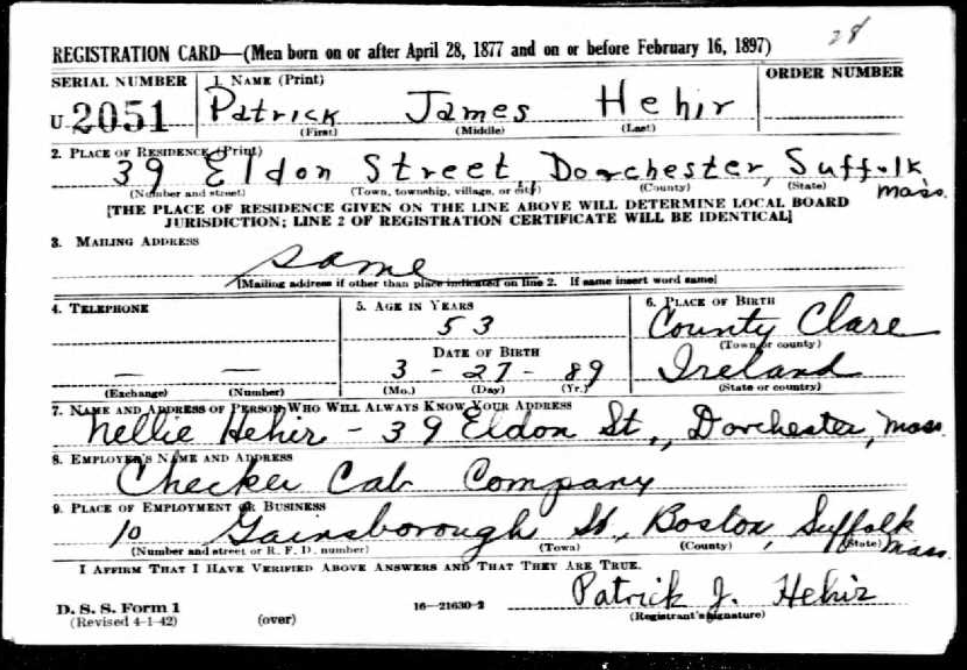 28
REGISTRATION CARD—(Men born on or after April 28, 1877 and on or before February 16, 1897)
SERIAL NUMBER 1. NAME (Print) ORDER NUMBER
U 2051 Patrick James Hehir
(First) (Middle) (Last)
2. PLACE OF RESIDENCE (Print)
39 Eldon Street, Dorchester, Suffolk
(Number and street) (Town, township, village, or city) (County) (State) Mass.
[THE PLACE OF RESIDENCE GIVEN ON THE LINE ABOVE WILL DETERMINE LOCAL BOARD
JURISDICTION; LINE 2 OF REGISTRATION CERTIFICATE WILL BE IDENTICAL]
3. MAILING ADDRESS
Same
[Mailing address if other than place indicated on line 2. If same insert word same]
4. TELEPHONE 5. AGE IN YEARS 6. PLACE OF BIRTH
53 County Clare
(Town or county)
DATE OF BIRTH
— — 3 - 27 - 89 Ireland
(Exchange) (Number) (Mo.) (Day) (Yr.) (State or country)
7. NAME AND ADDRESS OF PERSON WHO WILL ALWAYS KNOW YOUR ADDRESS
Nellie Hehir - 39 Eldon St., Dorchester, Mass.
8. EMPLOYER'S NAME AND ADDRESS
Checker Cab Company
9. PLACE OF EMPLOYMENT OR BUSINESS
10 Gainsborough St., Boston, Suffolk
(Number and street or R. F. D. number) (Town) (County) (State) Mass.
I AFFIRM THAT I HAVE VERIFIED ABOVE ANSWERS AND THAT THEY ARE TRUE.
Patrick J. Hehir
D. S. S. Form 1 16—21630-2 (Registrant's signature)
(Revised 4-1-42) (over)